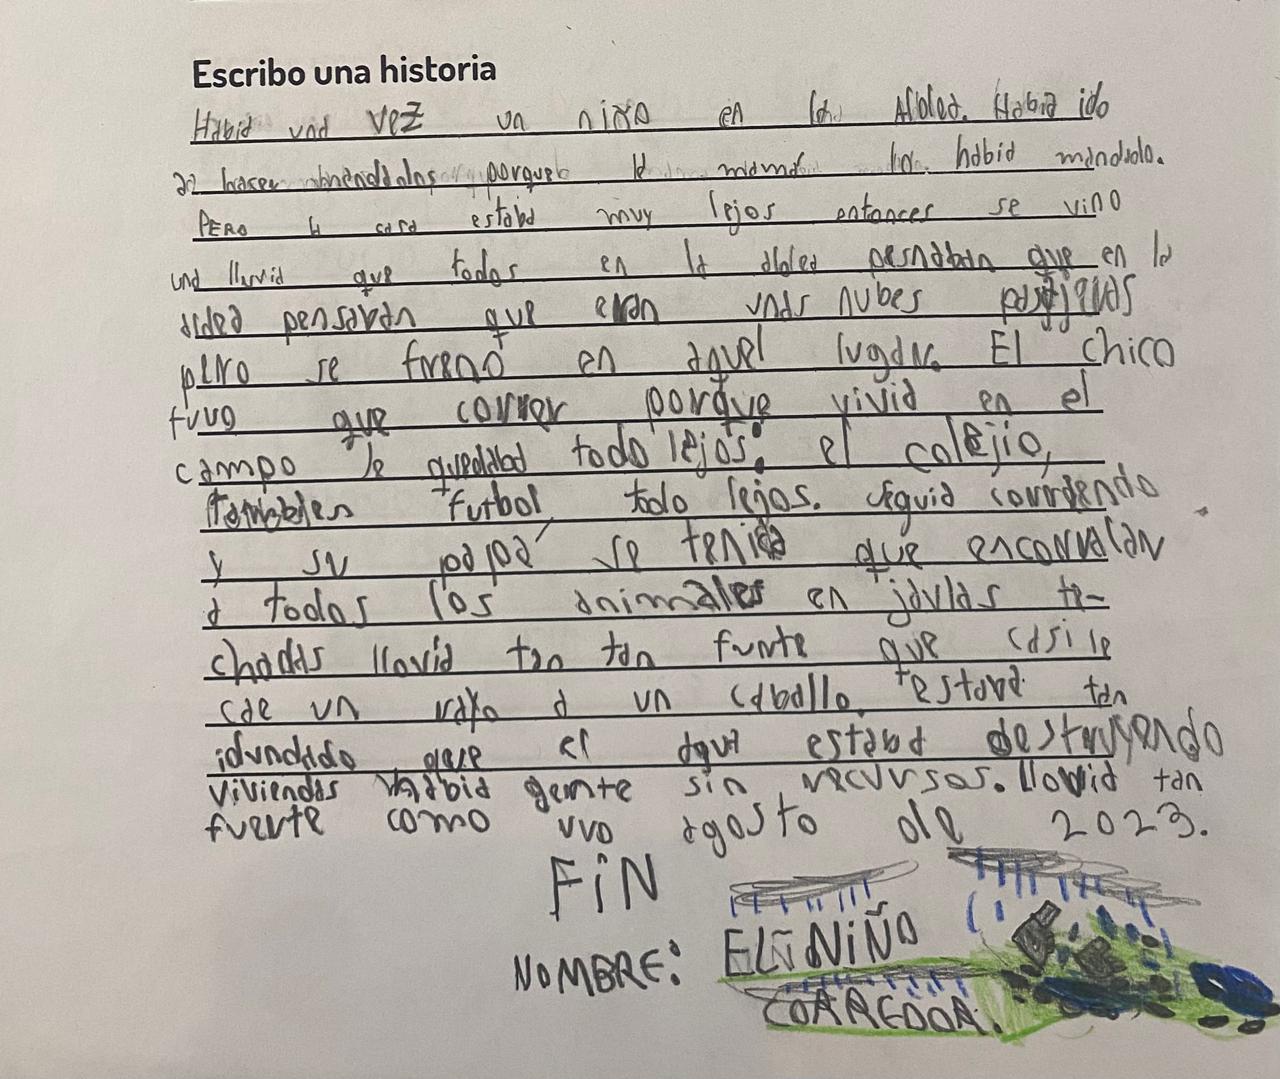 Escribo una historia
Habia una vez un niño en la Aldea. Habia ido
a hacer mandados porque la mamá lo habia mandado.
PERO la casa estaba muy lejos entonces se vino
una lluvia que todos en la aldea pesnaban que en la
aldea pensavan que eran unas nubes pasajeras
pero se frenó en aquel lugar. El chico
tuvo que correr porque vivia en el
campo le quedabad todo lejos: el colejio,
futbol, todo lejos. seguia corriendo
y su papá se tenia que encorralan
a todos los animales en javlas te-
chadas llovia tan tan funte que casi le
cae un rayo a un caballo. estava tan
idundado que el agua estaba destruyendo
viviendas habia gente sin recursos. llovia tan
fuerte como uvo agosto de 2023.
FiN
NOMBRE: EL NiÑO
CORREDOR.